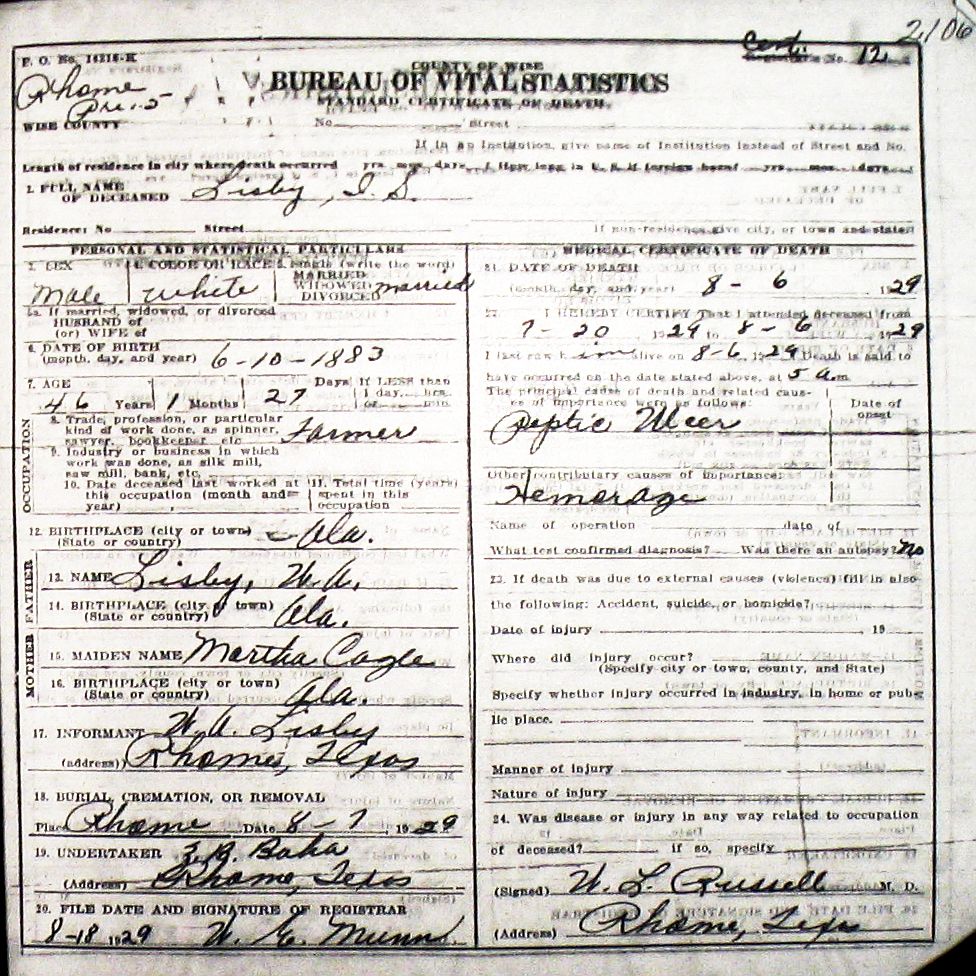 2106
F. O. No. 14216-K
COUNTY OF WISE
Cert. No. 12
Rhome
Pre. 5
BUREAU OF VITAL STATISTICS
STANDARD CERTIFICATE OF DEATH
WISE COUNTY No. Street
If in an Institution, give name of Institution instead of Street and No.
Length of residence in city where death occurred yrs. mos. days. How long in U. S. if foreign born? yrs. mos. days
1. FULL NAME
OF DECEASED Lisby, I. S.
Residence: No Street If non-residence give city, or town and state
PERSONAL AND STATISTICAL PARTICULARS
3. SEX Male
4. COLOR OR RACE White
5. Single (write the word)
MARRIED
WIDOWED
DIVORCED married
5a. If married, widowed, or divorced
HUSBAND of
(or) WIFE of
6. DATE OF BIRTH
(month, day, and year) 6-10-1883
7. AGE
46 Years 1 Months 27 Days If LESS than
1 day, hrs.
or min.
OCCUPATION
8. Trade, profession, or particular
kind of work done, as spinner,
sawyer, bookkeeper, etc Farmer
9. Industry or business in which
work was done, as silk mill,
saw mill, bank, etc.
10. Date deceased last worked at
this occupation (month and
year)
11. Total time (years)
spent in this
occupation
12. BIRTHPLACE (city or town)
(State or country) Ala.
FATHER
13. NAME Lisby, W. A.
14. BIRTHPLACE (city or town)
(State or country) Ala.
MOTHER
15. MAIDEN NAME Martha Cagle
16. BIRTHPLACE (city or town)
(State or country) Ala.
17. INFORMANT W. A. Lisby
(address) Rhome, Texas
18. BURIAL, CREMATION, OR REMOVAL
Place Rhome Date 8-7, 1929
19. UNDERTAKER Baha
(Address) Rhome, Texas
20. FILE DATE AND SIGNATURE OF REGISTRAR
8-18 1929 W. E. Munn
MEDICAL CERTIFICATE OF DEATH
21. DATE OF DEATH
(month, day, and year) 8-6 1929
22. I HEREBY CERTIFY That I attended deceased from
7-20 1929 to 8-6, 1929
I last saw him alive on 8-6, 1929 Death is said to
have occurred on the date stated above, at 5 a.m
The principal cause of death and related caus-
es of importance were as follows:
Date of
onset
Peptic Ulcer
Other contributory causes of importance:
Hemorage
Name of operation date of
What test confirmed diagnosis? Was there an autopsy? No
23. If death was due to external causes (violence) fill in also
the following: Accident, suicide, or homicide?
Date of injury 19
Where did injury occur?
(Specify city or town, county, and State)
Specify whether injury occurred in industry, in home or pub-
lic place.
Manner of injury
Nature of injury
24. Was disease or injury in any way related to occupation
of deceased? if so, specify
(Signed) W. L. Russell M. D.
(Address) Rhome, Texas